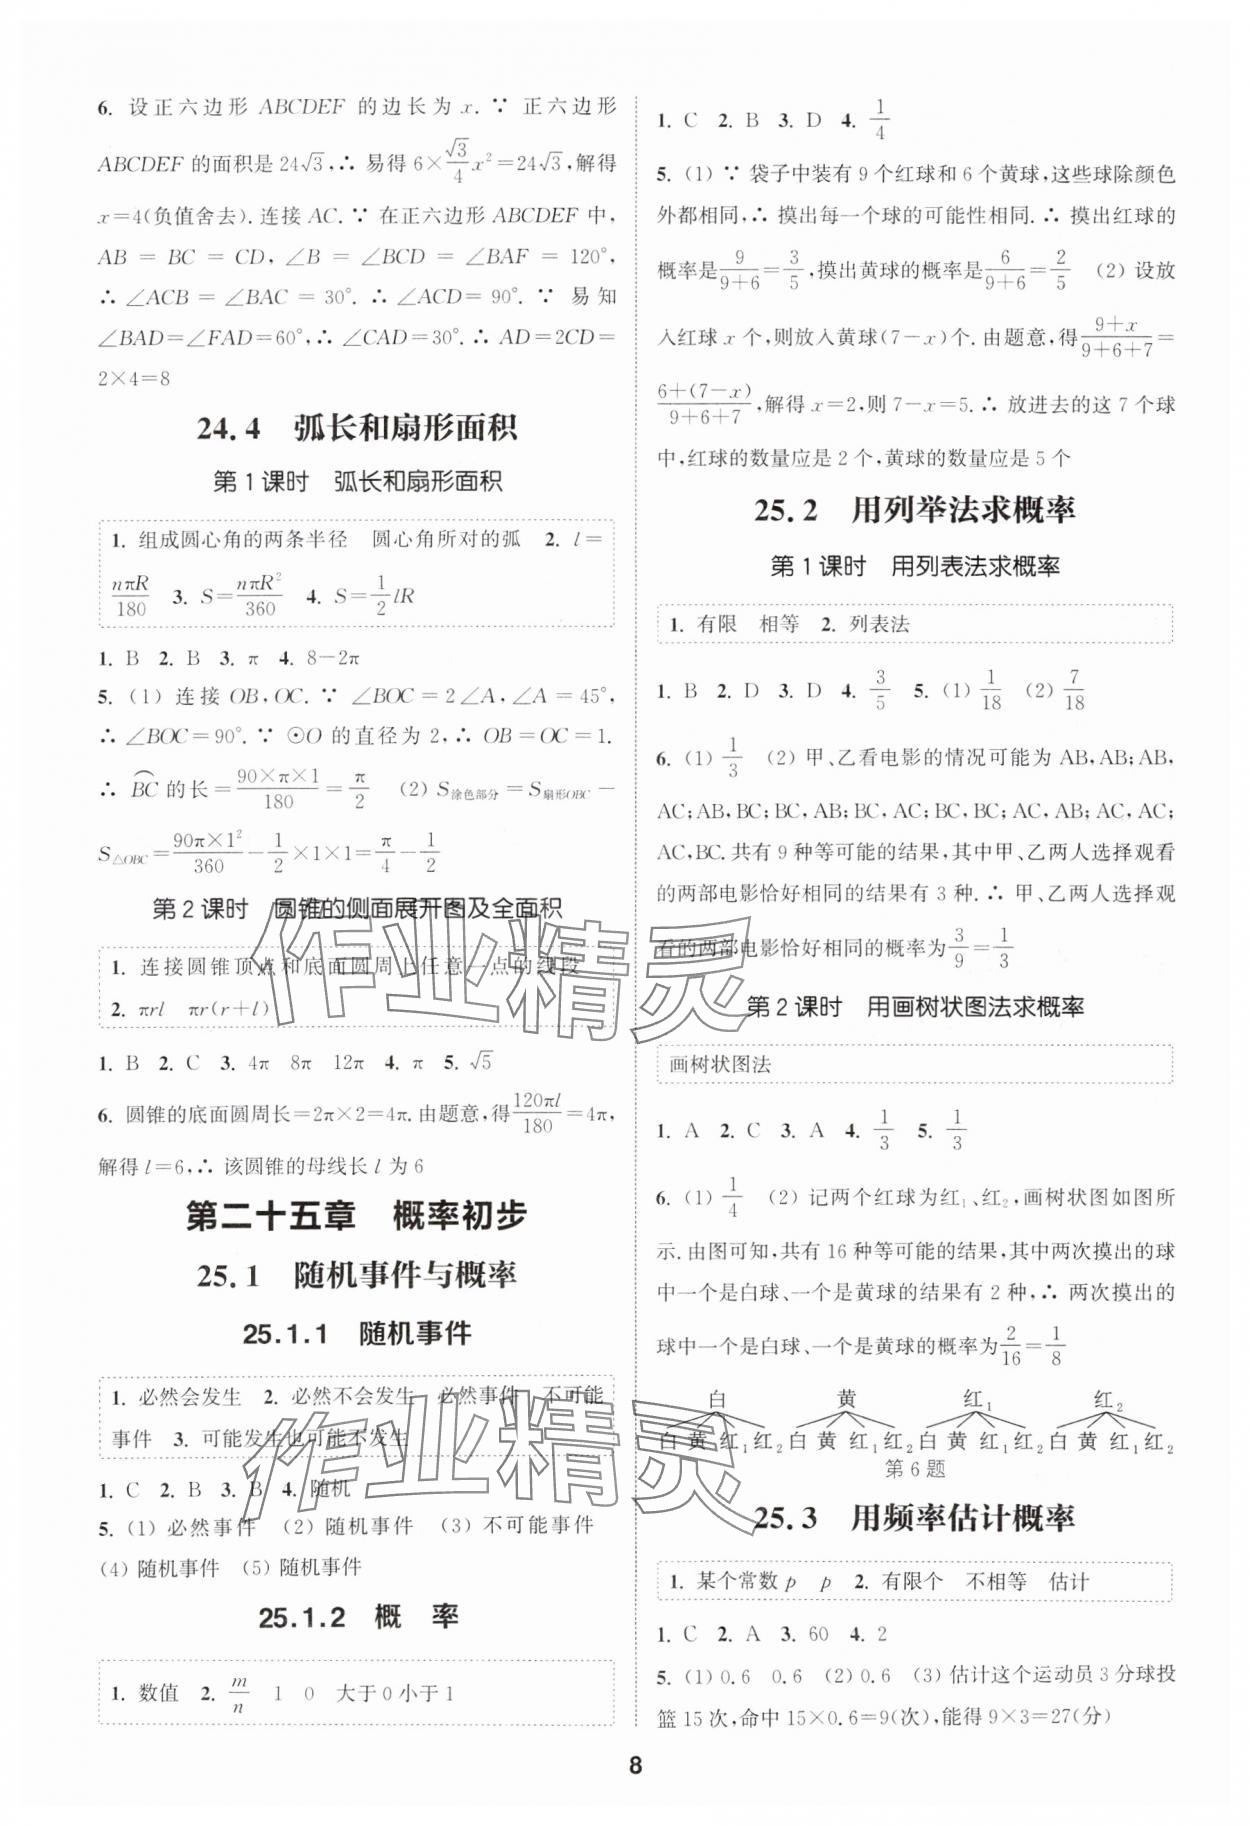 6. 设正六边形 ABCDEF 的边长为 x. ∵ 正六边形
ABCDEF 的面积是 24√3,∴ 易得 6×√3/4 x²=24√3,解得
x=4(负值舍去). 连接 AC. ∵ 在正六边形 ABCDEF 中,
AB = BC = CD, ∠B = ∠BCD = ∠BAF = 120°,
∴ ∠ACB = ∠BAC = 30°. ∴ ∠ACD = 90°. ∵ 易知
∠BAD=∠FAD=60°,∴ ∠CAD=30°. ∴ AD=2CD=
2×4=8
24.4 弧长和扇形面积
第1课时 弧长和扇形面积
1. 组成圆心角的两条半径 圆心角所对的弧 2. l=
nπR/180 3. S=nπR²/360 4. S=1/2 lR
1. B 2. B 3. π 4. 8-2π
5. (1) 连接 OB,OC. ∵ ∠BOC=2∠A,∠A=45°,
∴ ∠BOC=90°. ∵ ⊙O 的直径为 2,∴ OB=OC=1.
∴ ⌒BC 的长=90×π×1/180=π/2 (2) S涂色部分=S扇形OBC-
S△OBC=90π×1²/360-1/2×1×1=π/4-1/2
第2课时 圆锥的侧面展开图及全面积
1. 连接圆锥顶点和底面圆周上任意一点的线段
2. πrl πr(r+l)
1. B 2. C 3. 4π 8π 12π 4. π 5. √5
6. 圆锥的底面圆周长=2π×2=4π. 由题意,得120πl/180=4π,
解得 l=6,∴ 该圆锥的母线长 l 为 6
第二十五章 概率初步
25.1 随机事件与概率
25.1.1 随机事件
1. 必然会发生 2. 必然不会发生 必然事件 不可能
事件 3. 可能发生也可能不发生
1. C 2. B 3. B 4. 随机
5. (1) 必然事件 (2) 随机事件 (3) 不可能事件
(4) 随机事件 (5) 随机事件
25.1.2 概 率
1. 数值 2. m/n 1 0 大于0小于1
1. C 2. B 3. D 4. 1/4
5. (1) ∵ 袋子中装有 9 个红球和 6 个黄球,这些球除颜色
外都相同,∴ 摸出每一个球的可能性相同. ∴ 摸出红球的
概率是9/(9+6)=3/5,摸出黄球的概率是6/(9+6)=2/5 (2) 设放
入红球 x 个,则放入黄球(7-x)个. 由题意,得(9+x)/(9+6+7)=
(6+(7-x))/(9+6+7),解得 x=2,则 7-x=5. ∴ 放进去的这 7 个球
中,红球的数量应是 2 个,黄球的数量应是 5 个
25.2 用列举法求概率
第1课时 用列表法求概率
1. 有限 相等 2. 列表法
1. B 2. D 3. D 4. 3/5 5. (1) 1/18 (2) 7/18
6. (1) 1/3 (2) 甲、乙看电影的情况可能为 AB,AB;AB,
AC;AB,BC;BC,AB;BC,AC;BC,BC;AC,AB;AC,AC;
AC,BC. 共有 9 种等可能的结果,其中甲、乙两人选择观看
的两部电影恰好相同的结果有 3 种. ∴ 甲、乙两人选择观
看的两部电影恰好相同的概率为3/9=1/3
第2课时 用画树状图法求概率
画树状图法
1. A 2. C 3. A 4. 1/3 5. 1/3
6. (1) 1/4 (2) 记两个红球为红₁、红₂,画树状图如图所
示. 由图可知,共有 16 种等可能的结果,其中两次摸出的球
中一个是白球、一个是黄球的结果有 2 种,∴ 两次摸出的
球中一个是白球、一个是黄球的概率为2/16=1/8
白 黄 红₁ 红₂
白 黄 红₁ 红₂ 白 黄 红₁ 红₂ 白 黄 红₁ 红₂ 白 黄 红₁ 红₂
第6题
25.3 用频率估计概率
1. 某个常数 p p 2. 有限个 不相等 估计
1. C 2. A 3. 60 4. 2
5. (1) 0.6 0.6 (2) 0.6 (3) 估计这个运动员 3 分球投
篮 15 次,命中 15×0.6=9(次),能得 9×3=27(分)
8
作业精灵
作业精灵